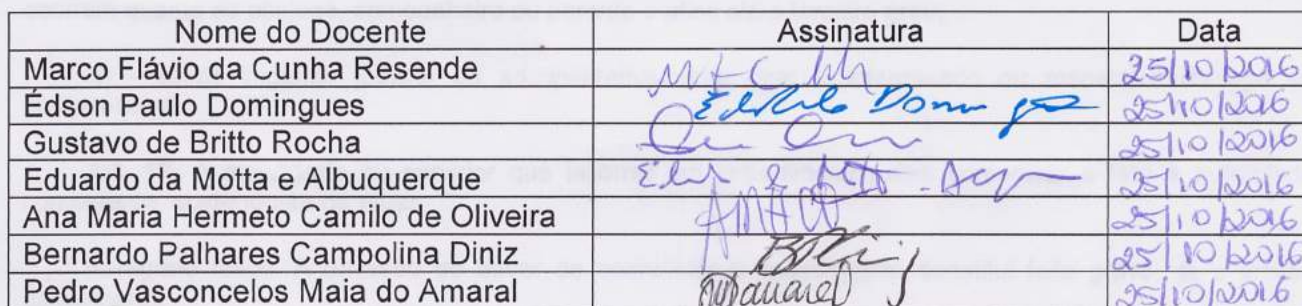 Nome do Docente Assinatura Data
Marco Flávio da Cunha Resende 25/10/2016
Édson Paulo Domingues Domingues 25/10/2016
Gustavo de Britto Rocha 25/10/2016
Eduardo da Motta e Albuquerque 25/10/2016
Ana Maria Hermeto Camilo de Oliveira AMHCO 25/10/2016
Bernardo Palhares Campolina Diniz 25/10/2016
Pedro Vasconcelos Maia do Amaral Amaral 25/10/2016